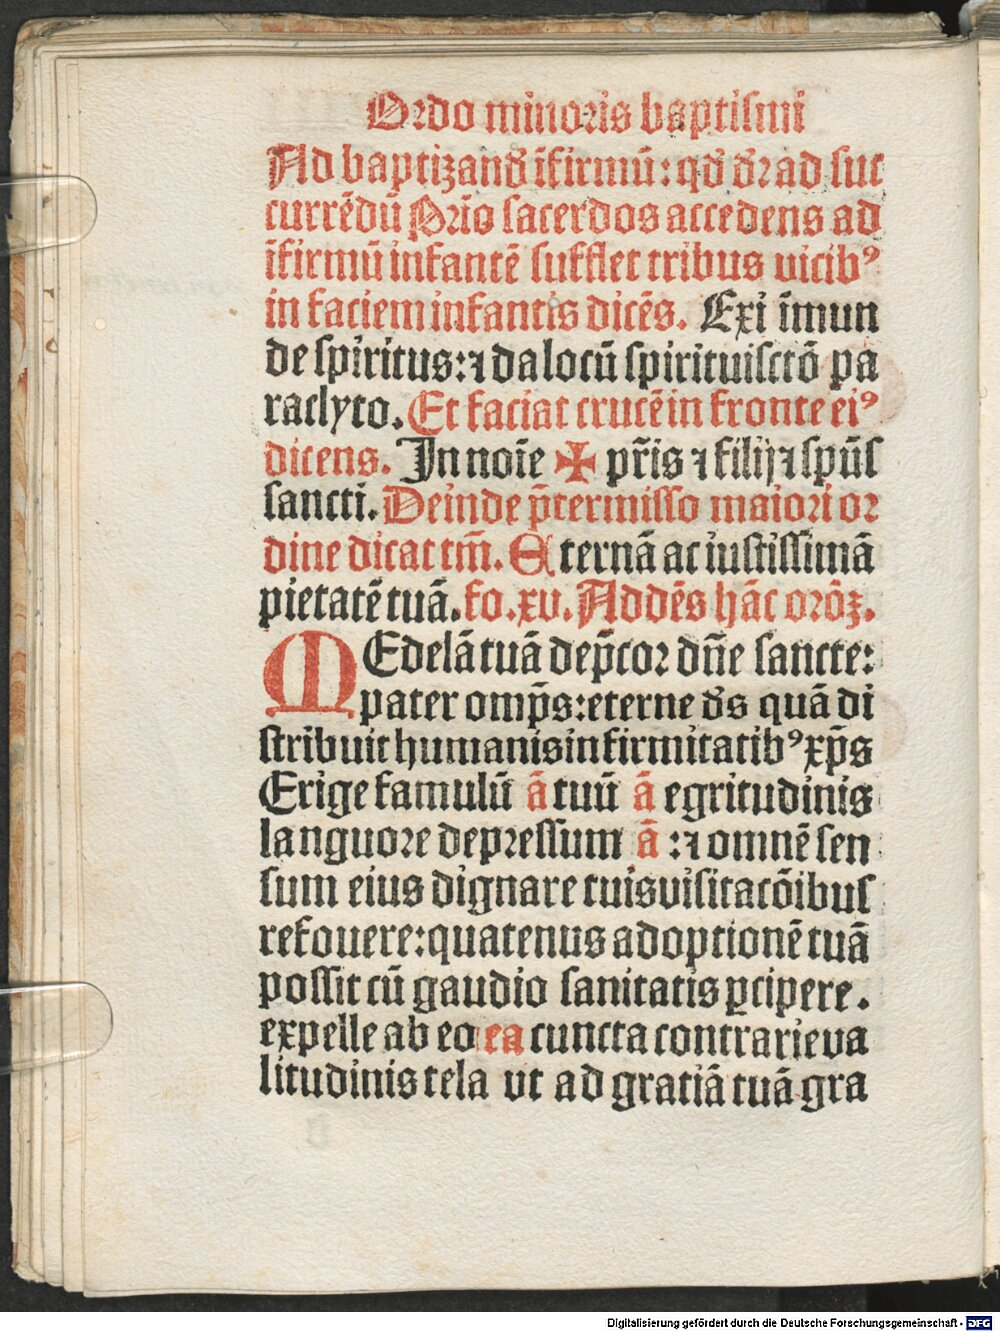 Ordo minoris baptismi
Ad baptizand̄ īfirmū: qd̄ dr̄ ad suc
currēdū Prīo sacerdos accedens ad
īfirmū infantē sufflet tribus vicibꝰ
in faciem infantis dicēs. Exi īmun
de spiritus: ⁊ da locū spirituisctō pa
raclyto. Et faciat crucē in fronte eiꝰ
dicens. In noīe ✠ pr̄is ⁊ filij ⁊ spūs
sancti. Deinde p̄termisso maiori or
dine dicat tm̄. Eternā ac iustissimā
pietatē tuā. fo. xv. Addēs hāc orōꝫ.
MEdelā tuā dep̄cor dn̄e sancte:
pater omp̄s: eterne ds̄ quā di
stribuit humanis infirmitatibꝰ xp̄s
Erige famulū ā tuū ā egritudinis
languore depressum ā : ⁊ omnē sen
sum eius dignare tuis visitatōibus
refovere: quatenus adoptionē tuā
possit cū gaudio sanitatis ꝑcipere.
expelle ab eo ea cuncta contrarie va
litudinis tela ut ad gratiā tuā gra
Digitalisierung gefördert durch die Deutsche Forschungsgemeinschaft - DFG